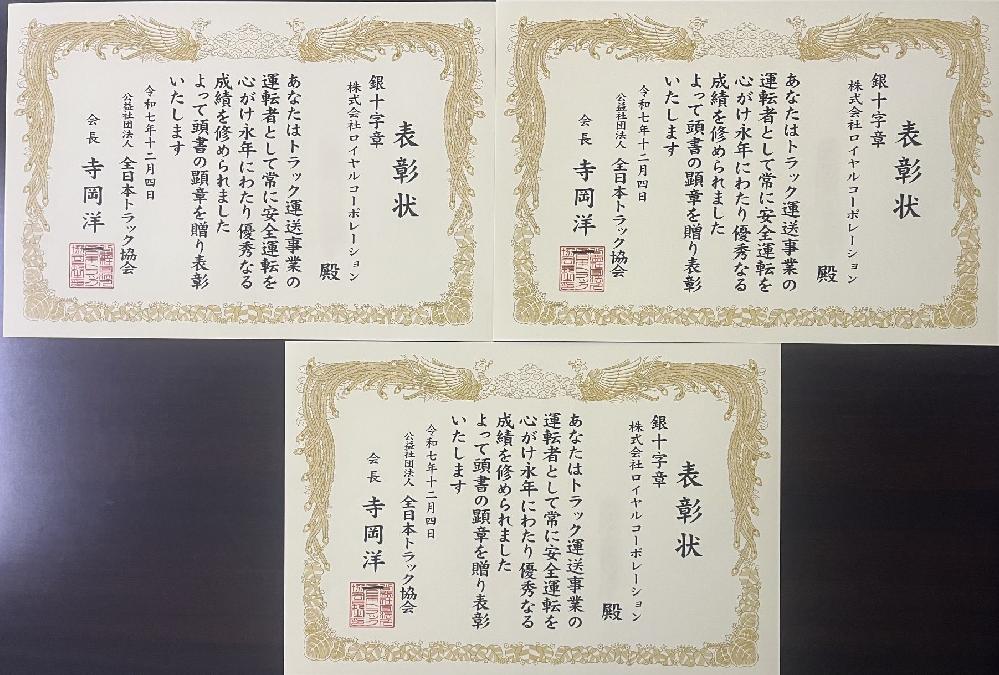 表彰状
銀十字章
株式会社ロイヤルコーポレーション
殿
あなたはトラック運送事業の
運転者として常に安全運転を
心がけ永年にわたり優秀なる
成績を修められました
よって頭書の顕章を贈り表彰
いたします
令和七年十二月四日
公益社団法人 全日本トラック協会
会長 寺岡洋
表彰状
銀十字章
株式会社ロイヤルコーポレーション
殿
あなたはトラック運送事業の
運転者として常に安全運転を
心がけ永年にわたり優秀なる
成績を修められました
よって頭書の顕章を贈り表彰
いたします
令和七年十二月四日
公益社団法人 全日本トラック協会
会長 寺岡洋
表彰状
銀十字章
株式会社ロイヤルコーポレーション
殿
あなたはトラック運送事業の
運転者として常に安全運転を
心がけ永年にわたり優秀なる
成績を修められました
よって頭書の顕章を贈り表彰
いたします
令和七年十二月四日
公益社団法人 全日本トラック協会
会長 寺岡洋